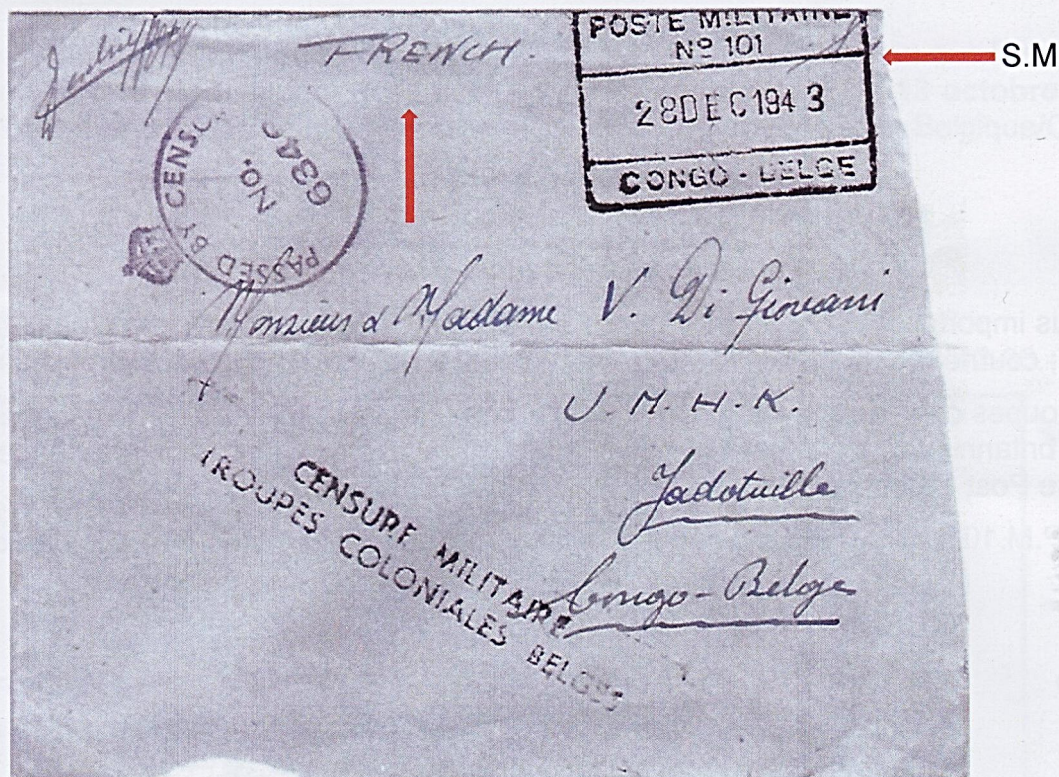 FRENCH.
POSTE MILITAIRE
Nº 101
28 DEC 1943
CONGO - BELGE
S.M
PASSED BY CENSO
NO.
6340
Monsieur & Madame V. Di Giovani
U. M. H. K.
Jadotville
Congo-Belge
CENSURE MILITAIRE
TROUPES COLONIALES BELGES
s import